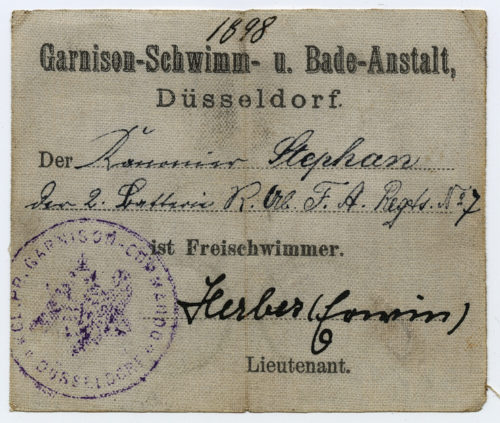 1898
Garnison-Schwimm- u. Bade-Anstalt,
Düsseldorf.
Der Kanonier Stephan
der 2. Batterie F. A. Regts. No 7
ist Freischwimmer.
Herber (Erwin)
Lieutenant.
PR. GARNISON-COMMANDO
DÜSSELDORF